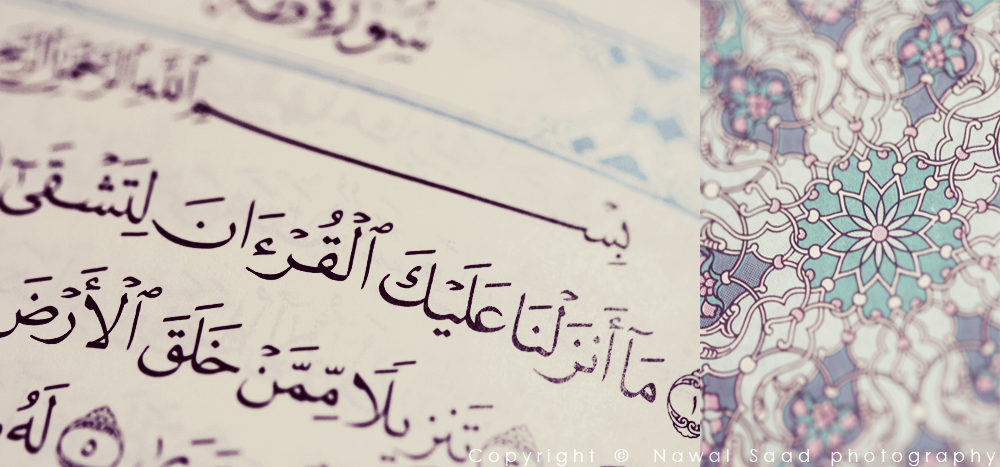 سُورَةُ
بِسْمِ ٱللَّهِ ٱلرَّحْمَٰنِ ٱلرَّحِيمِ
١ مَآ أَنزَلْنَا عَلَيْكَ ٱلْقُرْءَانَ لِتَشْقَىٰٓ
تَنزِيلًا مِّمَّنْ خَلَقَ ٱلْأَرْضَ
٥ لَهُۥ
Copyright © Nawal Saad photography